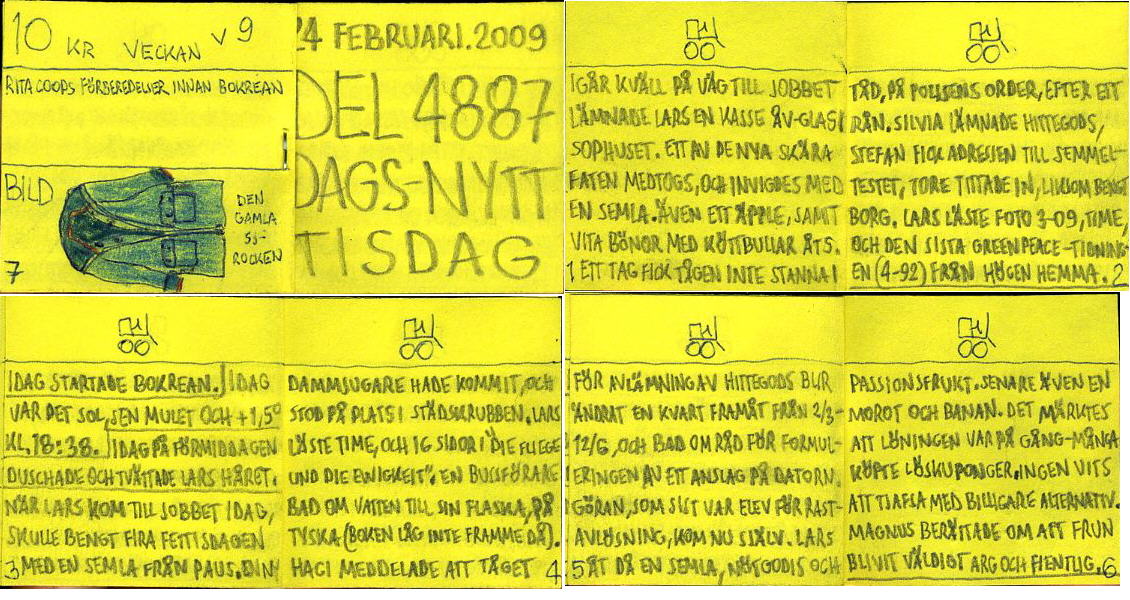 10 KR VECKAN V 9
RITA COOPS FÖRBEREDELSER INNAN BOKREAN
BILD
DEN
GAMLA
SJ-
ROCKEN
7
24 FEBRUARI.2009
DEL 4887
DAGS-NYTT
TISDAG
IGÅR KVÄLL PÅ VÄG TILL JOBBET
LÄMNADE LARS EN KASSE ÅV-GLAS I
SOPHUSET. ETT AV DE NYA SKÄRA
FATEN MEDTOGS, OCH INVIGDES MED
EN SEMLA. ÄVEN ETT ÄPPLE, SAMT
VITA BÖNOR MED KÖTTBULLAR ÄTS.
1 ETT TAG FICK TÅGEN INTE STANNA I
TÅD, PÅ POLISENS ORDER, EFTER ETT
RÅN. SILVIA LÄMNADE HITTEGODS,
STEFAN FICK ADRESSEN TILL SEMMEL-
TESTET, TORE TITTADE IN, LIKSOM BENGT
BORG. LARS LÄSTE FOTO 3-09, TIME,
OCH DEN SISTA GREENPEACE-TIDNING-
EN (4-92) FRÅN HÖGEN HEMMA. 2
IDAG STARTADE BOKREAN. IDAG
VAR DET SOL, SEN MULET OCH +1,5°
KL, 18:38. IDAG PÅ FÖRMIDDAGEN
DUSCHADE OCH TVÄTTADE LARS HÅRET.
NÄR LARS KOM TILL JOBBET IDAG,
SKULLE BENGT FIRA FETTISDAGEN
3 MED EN SEMLA FRÅN PAUS. EN NY
DAMMSUGARE HADE KOMMIT, OCH
STOD PÅ PLATS I STÄDSKRUBBEN. LARS
LÄSTE TIME, OCH 16 SIDOR I "DIE FLIEGE
UND DIE EWIGKEIT". EN BUSSFÖRARE
BAD OM VATTEN TILL SIN FLASKA, PÅ
TYSKA (BOKEN LÅG INTE FRAMME DÅ).
HACI MEDDELADE ATT TÅGET 4
FÖR AVLÄMNING AV HITTEGODS BLIR
ÄNDRAT EN KVART FRAMÅT FRÅN 2/3-
12/6, OCH BAD OM RÅD FÖR FORMUL-
ERINGEN AV ETT ANSLAG PÅ DATORN.
GÖRAN, SOM SIST VAR ELEV FÖR RAST-
AVLÖSNING, KOM NU SJÄLV. LARS
5 ÄT DÅ EN SEMLA, NÖTGODIS OCH
PASSIONSFRUKT. SENARE ÄVEN EN
MOROT OCH BANAN. DET MÄRKTES
ATT LÖNINGEN VAR PÅ GÅNG-MÅNGA
KÖPTE LÖSKUPONGER. INGEN VITS
ATT TJAFSA MED BILLIGARE ALTERNATIV.
MAGNUS BERÄTTADE OM ATT FRUN
BLIVIT VÄLDIGT ARG OCH FIENTLIG. 6